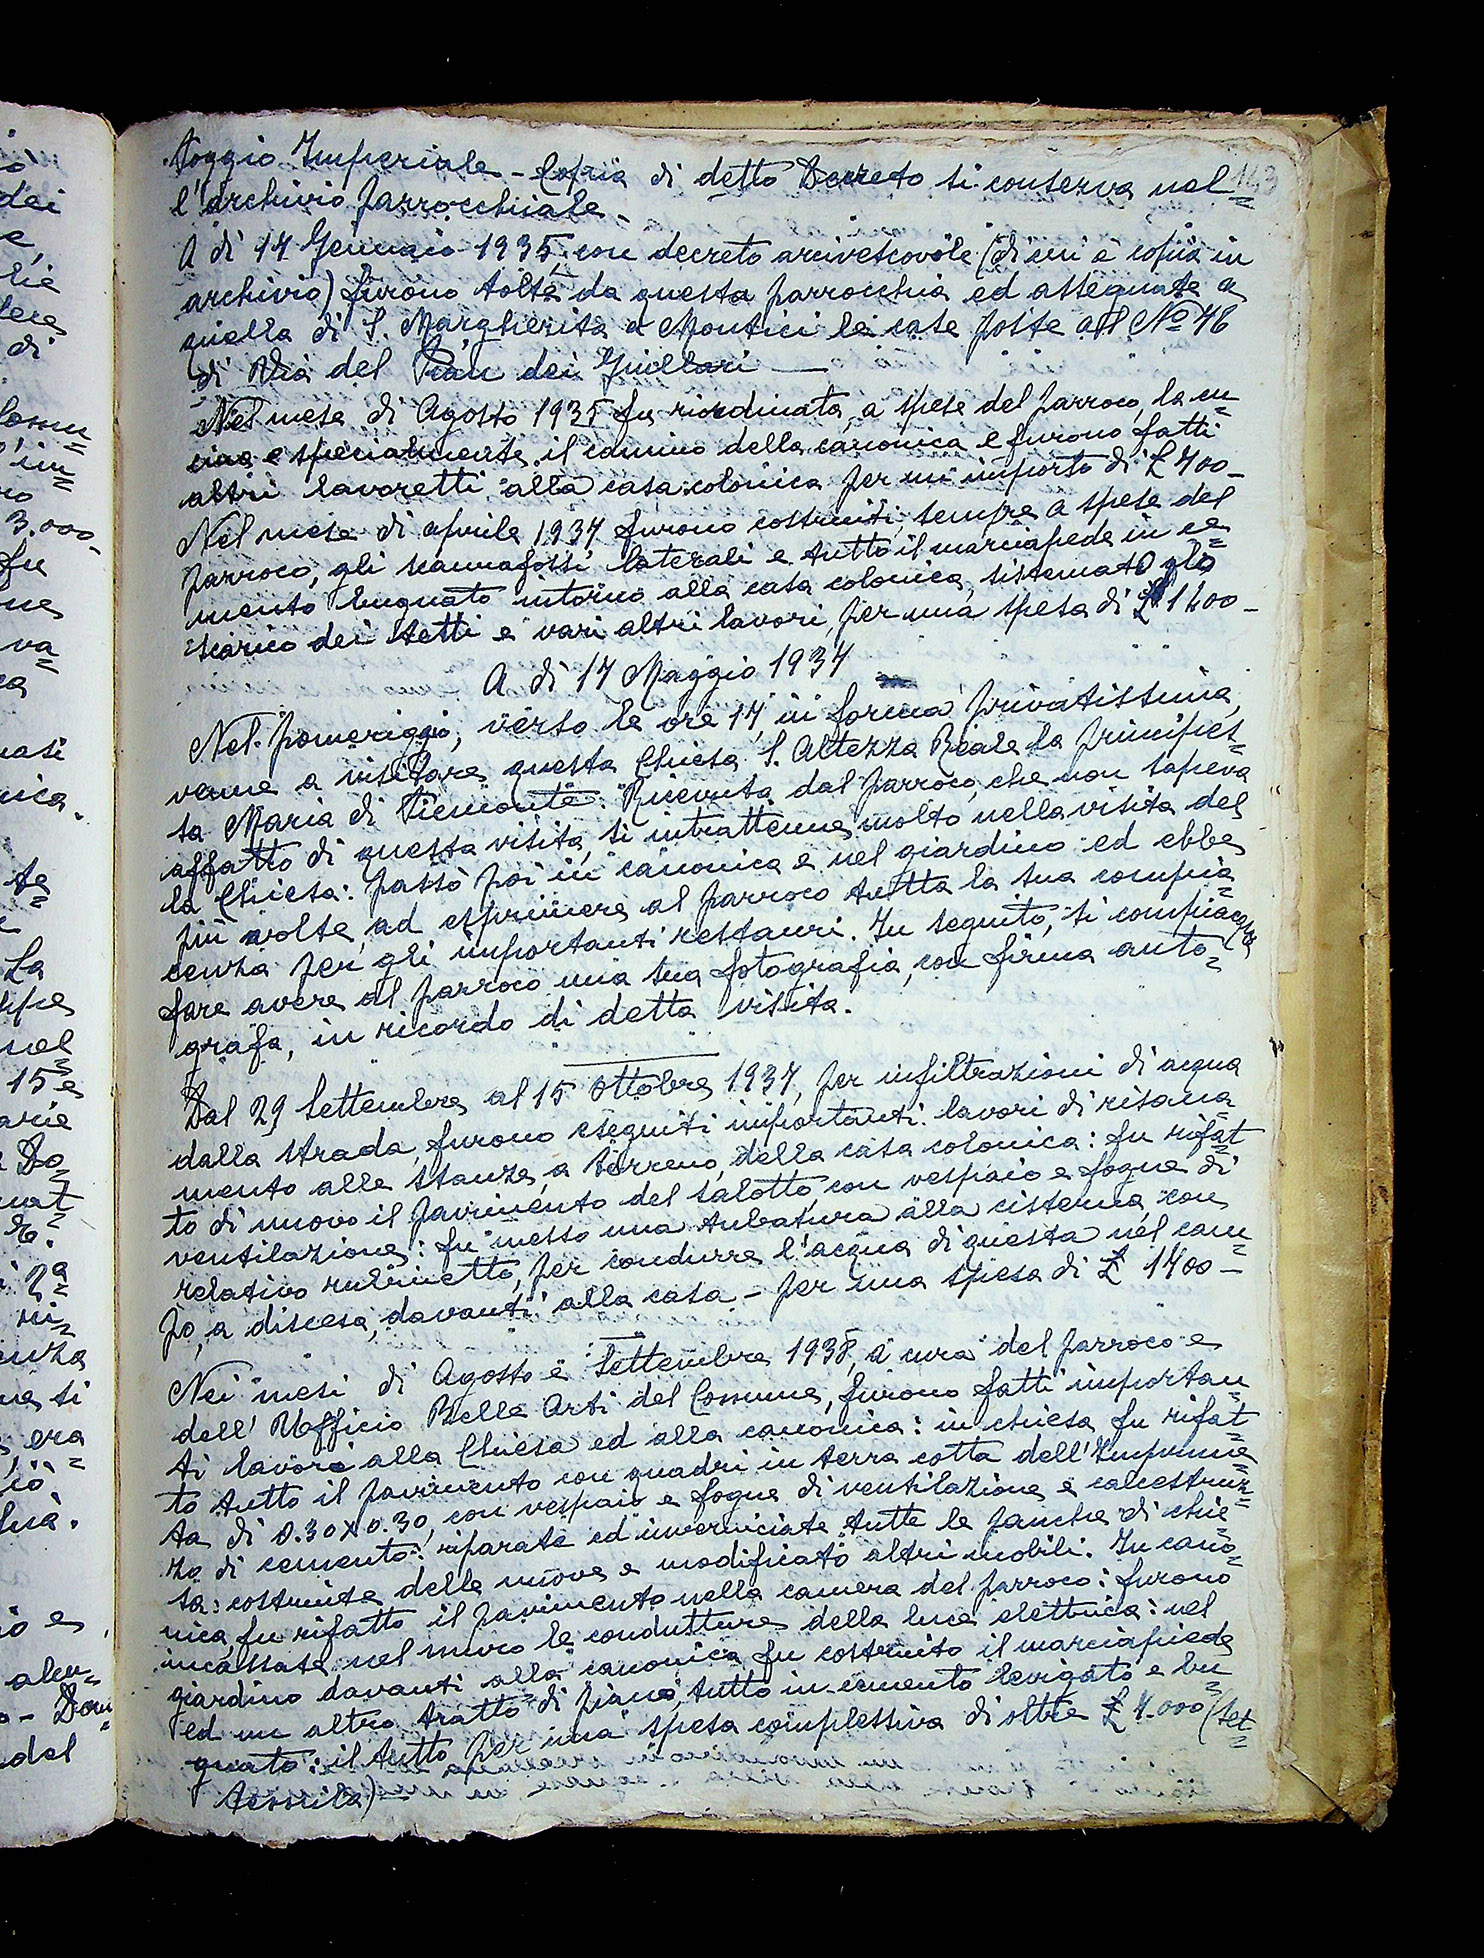 Poggio Imperiale - Copia di detto Decreto si conserva nel= 143
l'archivio parrocchiale -
A dì 17 Gennaio 1935, con decreto arcivescovile (di cui è copia in
archivio) furono tolte da questa parrocchia ed assegnate a
quella di S. Margherita a Montici le case poste al No 46
di Via del Pian dei Giullari —
Nel mese di Agosto 1935 fu riordinata, a spese del parroco, la cu=
cina e specialmente il camino della canonica e furono fatti
altri lavoretti alla casa colonica per un importo di £ 700 -
Nel mese di aprile 1937 furono costruiti, sempre a spese del
parroco, gli scannafossi laterali e tutto il marciapede in ce=
mento bugnato intorno alla casa colonica, sistemato glo
scarico dei tetti e vari altri lavori, per una spesa di £ 1400 -
A dì 17 Maggio 1937
Nel pomeriggio, verso le ore 17, in forma privatissima,
venne a visitare questa Chiesa S. Altezza Reale la Principes=
sa Maria di Piemonte. Ricevuta dal parroco, che non sapeva
affatto di questa visita, si intrattenne molto nella visita del
la Chiesa: passò poi in canonica e nel giardino ed ebbe
più volte, ad esprimere al parroco tutta la sua compia=
cenza per gli importanti restauri. In seguito, si compiacque
fare avere al parroco una sua fotografia, con firma auto=
grafa, in ricordo di detta visita.
Dal 29 Settembre al 15 Ottobre 1937, per infiltrazioni di acqua
dalla strada, furono eseguiti importanti lavori di risana
mento alle stanze, a terreno, della casa colonica: fu rifat=
to di nuovo il pavimento del salotto, con vespaio e fogne di
ventilazione: fu messo una tubatura alla cisterna, con
relativo rubinetto, per condurre l'acqua di questa nel cam=
po, a discesa, davanti alla casa - per una spesa di £ 1700 -
Nei mesi di Agosto e Settembre 1938, a cura del parroco e
dell'Ufficio Belle Arti del Comune, furono fatti importan=
ti lavori alla Chiesa ed alla canonica: in chiesa fu rifat=
to tutto il pavimento con quadri in terra cotta dell'Imprune=
ta di 0.30 x 0.30, con vespaio e fogne di ventilazione e calcestruz=
zo di cemento: riparate ed inverniciate tutte le panche di chie=
sa: costruite delle nuove e modificato altri mobili. In cano=
nica fu rifatto il pavimento nella camera del parroco: furono
incassate nel muro le condutture della luce elettrica: nel
giardino davanti alla canonica fu costruito il marciapiede
ed un altro tratto di piano, tutto in cemento levigato e bu=
gnato: il tutto per una spesa complessiva di oltre £ 7.000 (set=
temila)